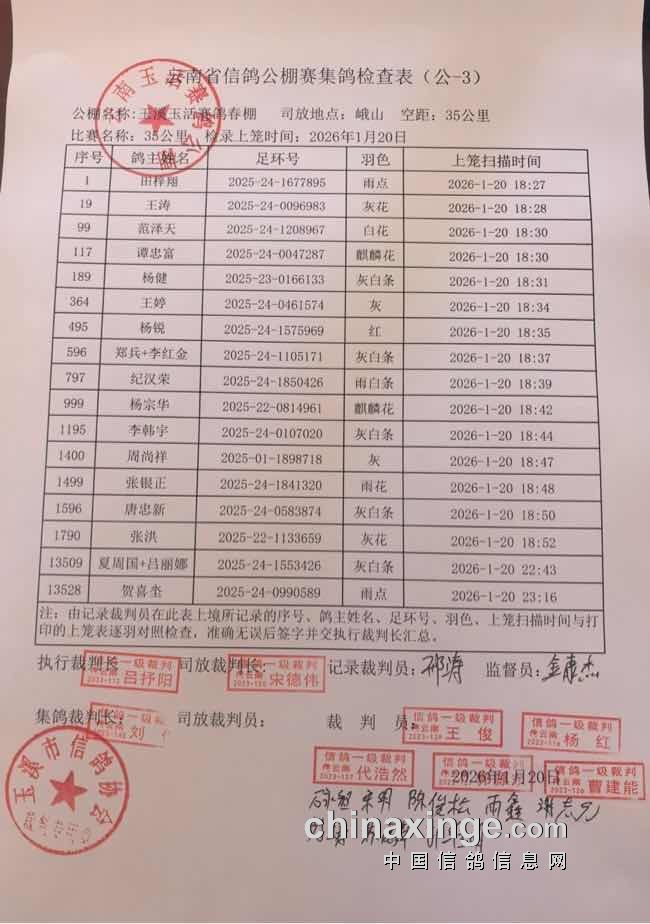 云南省信鸽公棚赛集鸽检查表（公-3）
公棚名称：玉溪玉活赛鸽春棚 司放地点：峨山 空距：35公里
比赛名称：35公里 检录上笼时间：2026年1月20日
序号 鸽主姓名 足环号 羽色 上笼扫描时间
1 田梓翔 2025-24-1677895 雨点 2026-1-20 18:27
19 王涛 2025-24-0096983 灰花 2026-1-20 18:28
99 范泽天 2025-24-1208967 白花 2026-1-20 18:30
117 谭忠富 2025-24-0047287 麒麟花 2026-1-20 18:30
189 杨健 2025-23-0166133 灰白条 2026-1-20 18:31
364 王婷 2025-24-0461574 灰 2026-1-20 18:34
495 杨锐 2025-24-1575969 红 2026-1-20 18:35
596 郑兵+李红金 2025-24-1105171 灰白条 2026-1-20 18:37
797 纪汉荣 2025-24-1850426 雨白条 2026-1-20 18:39
999 杨宗华 2025-22-0814961 麒麟花 2026-1-20 18:42
1195 李韩宇 2025-24-0107020 灰白条 2026-1-20 18:44
1400 周尚祥 2025-01-1898718 灰 2026-1-20 18:47
1499 张银正 2025-24-1841320 雨花 2026-1-20 18:48
1596 唐忠新 2025-24-0583874 灰白条 2026-1-20 18:50
1790 张洪 2025-22-1133659 灰花 2026-1-20 18:52
13509 夏周国+吕丽娜 2025-24-1553426 灰白条 2026-1-20 22:43
13528 贺喜奎 2025-24-0990589 雨点 2026-1-20 23:16
注：由记录裁判员在此表上填所记录的序号、鸽主姓名、足环号、羽色、上笼扫描时间与打
印的上笼表逐羽对照检查，准确无误后签字并交执行裁判长汇总。
执行裁判长 吕抒阳 司放裁判长： 宋德伟 记录裁判员： 监督员：金惠杰
集鸽裁判长： 刘 司放裁判员： 裁 判 员：
信鸽一级裁判 王俊
信鸽一级裁判 杨红
信鸽一级裁判 代浩然
2026年1月20日
信鸽一级裁判 曹建能
玉溪市信鸽协会
chinaxinge.com
中国信鸽信息网